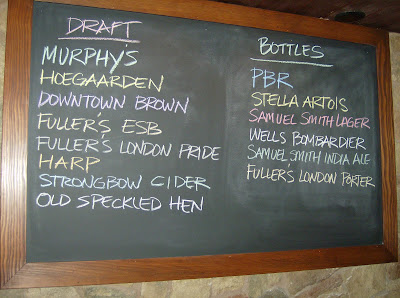 DRAFT
MURPHY'S
HOEGAARDEN
DOWNTOWN BROWN
FULLER'S ESB
FULLER'S LONDON PRIDE
HARP
STRONGBOW CIDER
OLD SPECKLED HEN
BOTTLES
PBR
STELLA ARTOIS
SAMUEL SMITH LAGER
WELLS BOMBARDIER
SAMUEL SMITH INDIA ALE
FULLER'S LONDON PORTER